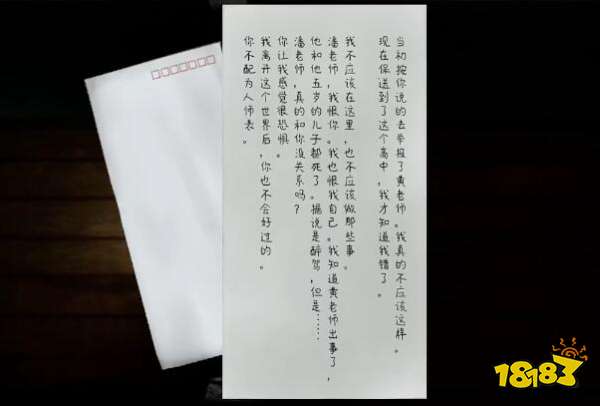 当初按你说的去举报了黄老师。我真的不应该这样。
现在保送到了这个高中，我才知道我错了。
我不应该在这里，也不应该做那些事。
潘老师，我恨你。我也恨我自己。我知道黄老师出事了，
他和他五岁的儿子都死了。据说是醉驾，但是……
潘老师，真的和你没关系吗？
你让我感觉很恐惧。
我离开这个世界后，你也不会好过的。
你不配为人师表。
18183